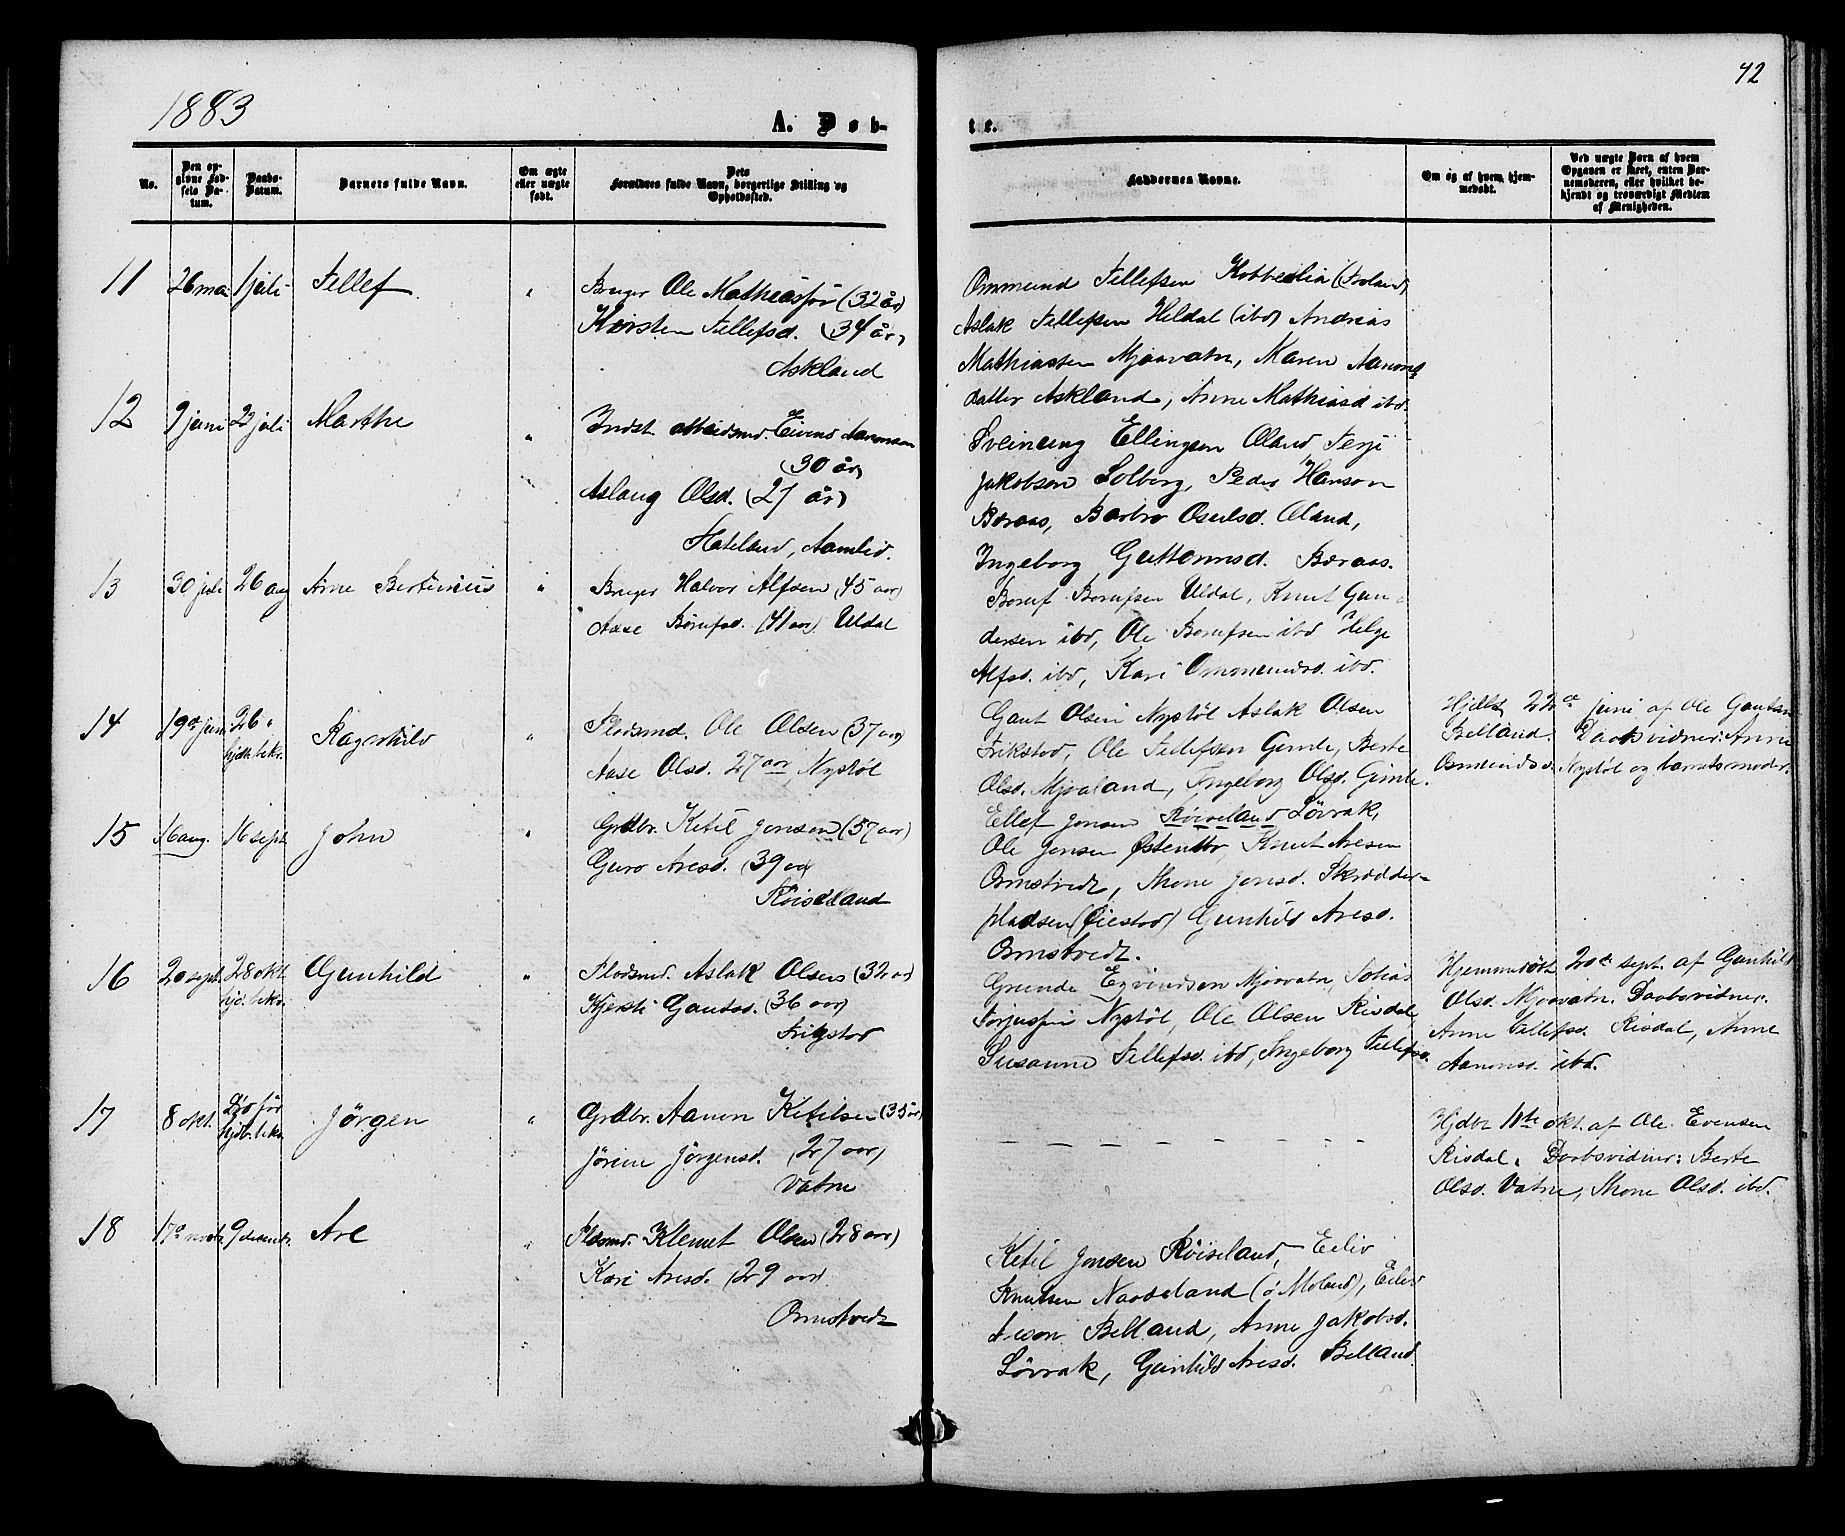 1883
A. Døb-
te.
42
No.
Den opgivne Fødsels Datum.
Daabs-Datum.
Barnets fulde Navn.
Om ægte eller uægte født.
Dets Forældres fulde Navn, borgerlige Stilling og Opholdssted.
Faddernes Navne.
Om og af hvem hjemmedøbt.
Ved uægte Børn af hvem Opgaven er skeet, enten Barnemoderen, eller hvilket bekjendt og troværdigt Medlem af Menigheden.
11 26 mai 1 juli Tellef " Bruger Ole Mathiassøn (32 år)
Kirsten Tellefsd. (34 år)
Askland
Ommund Tellefsen Kobbeslia (Froland)
Aslak Tellefsen Heldal (ibd) Andreas
Mathiassen Mjaavatn, Maren Aanons
datter Askland, Anne Mathiasd ibd.
12 9 juni 22 juli Marthe " Indst. arbeidsmd. Eivind Aanonsen
(30 år)
Aslaug Olsd. (27 år)
Hateland, Aamlid.
Sveinung Ellingsen Øland Terje
Jakobsen Solberg, Peder Hanson
Beraas, Barbro Osulsd. Øland,
Ingeborg Guttormsd. Beraas.
13 30 juli 26 aug Arne Bertinius " Bruger Halvor Alfsen (45 aar)
Aase Børufsd. (41 aar) Uldal
Boruf Borufsen Uldal, Knut Gun-
dersen ibd, Ole Borufsen ibd Helge
Alfsd. ibd, Kari Ommundsd. ibd.
14 19de juni 26 " hjdb. bekr. Ragnhild " Pladsmd. Ole Olsen (37 aar)
Aase Olsd. 27 aar, Nystøl
Gaut Olsen Nystøl Aslak Olsen
Frikstod, Ole Tellefsen Gimle, Berte
Olsd. Mjaaland, Ingeborg Olsd. Gimle.
Hjdbt 22de juni af Ole Gautsen
Belland. Daabsvidner: Anne
Osmundsd. Nystøl og barnets moder.
15 16 aug. 16 sept John " Grdbr. Ketil Jonsen (57 aar)
Guro Aresd. (39 aar)
Røiseland
Ellef Jonsen Røiseland Løvrak,
Ole Jensen Østentbo, Knut Aresen
Ormstvedt, Thone Jonsd. Skrædder-
pladsen (Øiestad) Gunhild Aresd.
Ormstvedt.
16 20 sept. 28 okt. hjd. bekr. Gunhild " Pladsmd. Aslak Olsen (32 aar)
Kjersti Gautsd. (36 aar)
Frikstod
Grunde Eyvindsen Mjaavatn, Tobias
Torjussen Nystøl, Ole Olsen Risdal
Susanne Tellefsd. ibd, Ingeborg Tellefsd.
Hjemmedøbt 20de sept. af Gunhild
Olsd. Mjaavatn. Daabsvidner:
Anne Tellefsd. Risdal, Anne
Aanonsd. ibd.
17 8 okt. død før hjdb. bekr. Jørgen " Grdbr. Aanon Ketilsen (35 år)
Jørine Jørgensd. (27 aar)
Vatne
— — — — — — — —
Hjdbt 11te okt. af Ole Evensen
Risdal. Daabsvidner: Berte
Olsd. Vatne, Thone Olsd. ibd.
18 17de novbr. 9 decembr. Are " Pladsmd. Klemet Olsen (28 aar)
Kari Aresd. (29 aar)
Ormstvedt
Ketil Jonsen Røiseland, Eiliv
Knutsen Naadeland (i Moland), Eiliv
Areson Belland, Anne Jakobsd.
Løvrak, Gunhild Aresd. Belland